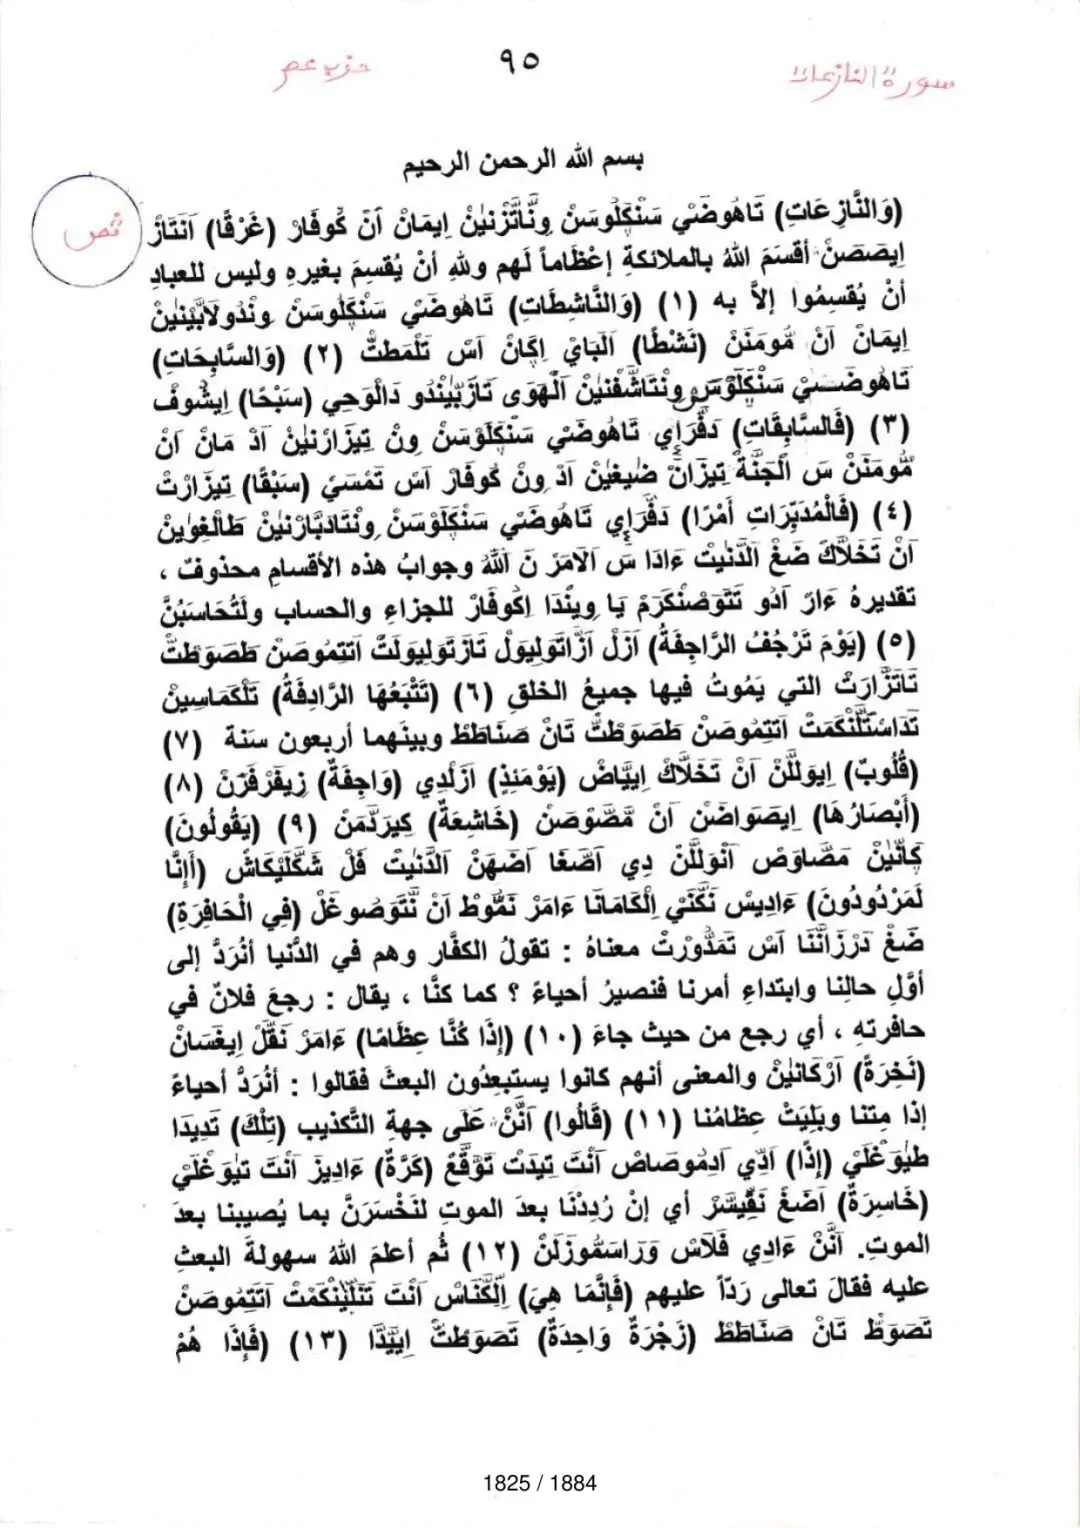 سورة النازعات
٩٥
حزب عم
بسم الله الرحمن الرحيم
ثمن
(وَالنَّازِعَاتِ) تَاهُوضَنْي سَنْكَلُوسَنْ وِنَّاتَّزْنِيْنْ اِيمَانْ اَنْ كُوفَارْ (غَرْقًا) اَنْتَازْ
اِيصَصَنْ أقسَمَ اللهُ بالملائكةِ إعْظَاماً لَهم وللهِ أنْ يُقسِمَ بغيرِهِ وليس للعبادِ
أنْ يُقسِمُوا إلاَّ به (١) (وَالنَّاشِطَاتِ) تَاهُوضَنْي سَنْكَلُوسَنْ
اِيمَانْ اَنْ مُّومَنَنْ (نَشْطًا) اَلْبَايْ اِكَانْ اَسْ تَلْمَطتْ (٢) (وَالسَّابِحَاتِ)
اَلْهَوَى دَالْوَحِي (سَبْحًا) اِيشُوفْ
(٣) (فَالسَّابِقَاتِ) دَفَّرَايِ تَاهُوضَنْي سَنْكَلَوْسَنْ وِنْ تِيزَارْنِيْنْ اَدْ مَانْ اَنْ
مُّومَنَنْ سَ الْجَنَّةْ تِيزَانْ ضِيغِيْنْ اَدْ وِنْ كُوفَارْ اَسْ تَمْسَيْ (سَبْقًا) تِيزَارْتْ
(٤) (فَالْمُدَبِّرَاتِ أَمْرًا) دَفَّرَايِ تَاهُوضَنْي سَنْكَلَوْسَنْ وِنْتَادَبَّارْنِيْنْ طَالْغِوِيْنْ
اَنْ تَخَلاَّكْ ضَغْ اَلدَّنِيْتْ ءَادَا سَ اَلاَمَرْ نَ اَللهُ وجوابُ هذه الأقسامِ محذوفٌ ،
تقديرهُ ءَارْ اَدُو تَتَّوَصْنَكَرَمْ يَا وِينْدَا اِكُوفَارْ للجزاءِ والحساب ولَتُحَاسَبُنَّ
(٥) (يَوْمَ تَرْجُفُ الرَّاجِفَةُ) اَزَلْ اَزَّاتَوِلِيوَلْ تَازَتَوِلِيوَلَتْ اَتَتِمُوصَنْ طَصَوَطَتْ
تَاتَزَّارَتْ التي يَمُوتُ فيها جميعُ الخلقِ (٦) (تَتْبَعُهَا الرَّادِفَةُ) تَلْكَمَاسِيْنْ
اَتَتِمُوصَنْ طَصَوَطَتْ تَانْ صَنَاطَطْ وبينَهما أربعون سَنة (٧)
(قُلُوبٌ) اِيوَلْلَنْ اَنْ تَخَلاَّكْ اِييَّاضْ (يَوْمَئِذٍ) اَزَلْدِي (وَاجِفَةٌ) زِيفَرْفَرَنْ (٨)
(أَبْصَارُهَا) اِيصَوَاضَنْ اَنْ مَّصُّوصَنْ (خَاشِعَةٌ) كِيرَدَمَنْ (٩) (يَقُولُونَ)
كَانِّيْنْ مَصَّاوَصْ اَنْوَلْلَنْ دِي اَضَغَا اَضَهَنْ اَلدَّنِيْتْ فَلْ شَكَّلِيْكَاشْ (أَإِنَّا
لَمَرْدُودُونَ) ءَادِيسْ نَكَّنْي اِلْكَامَانَا ءَامَرْ نَمُّوطْ اَنْ نَتَّوَصُوغَلْ (فِي الْحَافِرَةِ)
ضَغْ دَرْزَانَّنَا اَسْ تَمَدُّورْتْ معناهُ : تقولُ الكفَّار وهم في الدُّنيا أنُرَدُّ إلى
أوَّلِ حالِنا وابتداءِ أمرنا فنصيرُ أحياءً ؟ كما كنَّا ، يقال : رجعَ فلانٌ في
حافرتهِ ، أي رجع من حيث جاءَ (١٠) (إِذَا كُنَّا عِظَامًا) ءَامَرْ نَقَّلْ اِيغَسَانْ
(نَخِرَةً) اَرْكَانِيْنْ والمعنى أنهم كانوا يستبعِدُون البعثَ فقالوا : أنُرَدُّ أحياءً
إذا مِتنا وبَلِيَتْ عِظامُنا (١١) (قَالُوا) اَنَّنْ عَلَى جهةِ التَّكذيب (تِلْكَ) تَدِيدَا
طيُوغَلَيْ (إِذًا) اَدِّي اَدِمُوصَاصْ اَنْتَ تِيدَتْ تَوَّقَّعْ (كَرَّةٌ) ءَادِيزْ اَنْتَ تيُوغَلَيْ
(خَاسِرَةٌ) اَضَغَ نَقِيسَّرْ أي إنْ رُدِدْنَا بعدَ الموتِ لنَخْسَرَنَّ بما يُصيبنا بعدَ
الموتِ. اَنَّنْ ءَادِي فَلاَسْ وَرَاسَمُّوزَلَنْ (١٢) ثُم أعلمَ اللهُ سهولةَ البعثِ
عليه فقالَ تعالى رَدّاً عليهم (فَإِنَّمَا هِيَ) اِلْكَنَاسْ اَنْتَ تَنَلِّيْنْكَمَتْ اَتَتِمُوصَنْ
تَصَوَطْ تَانْ صَنَاطَطْ (زَجْرَةٌ وَاحِدَةٌ) تَصَوَطَتْ اِيَّيْدَا (١٣) (فَإِذَا هُمْ
1825 / 1884